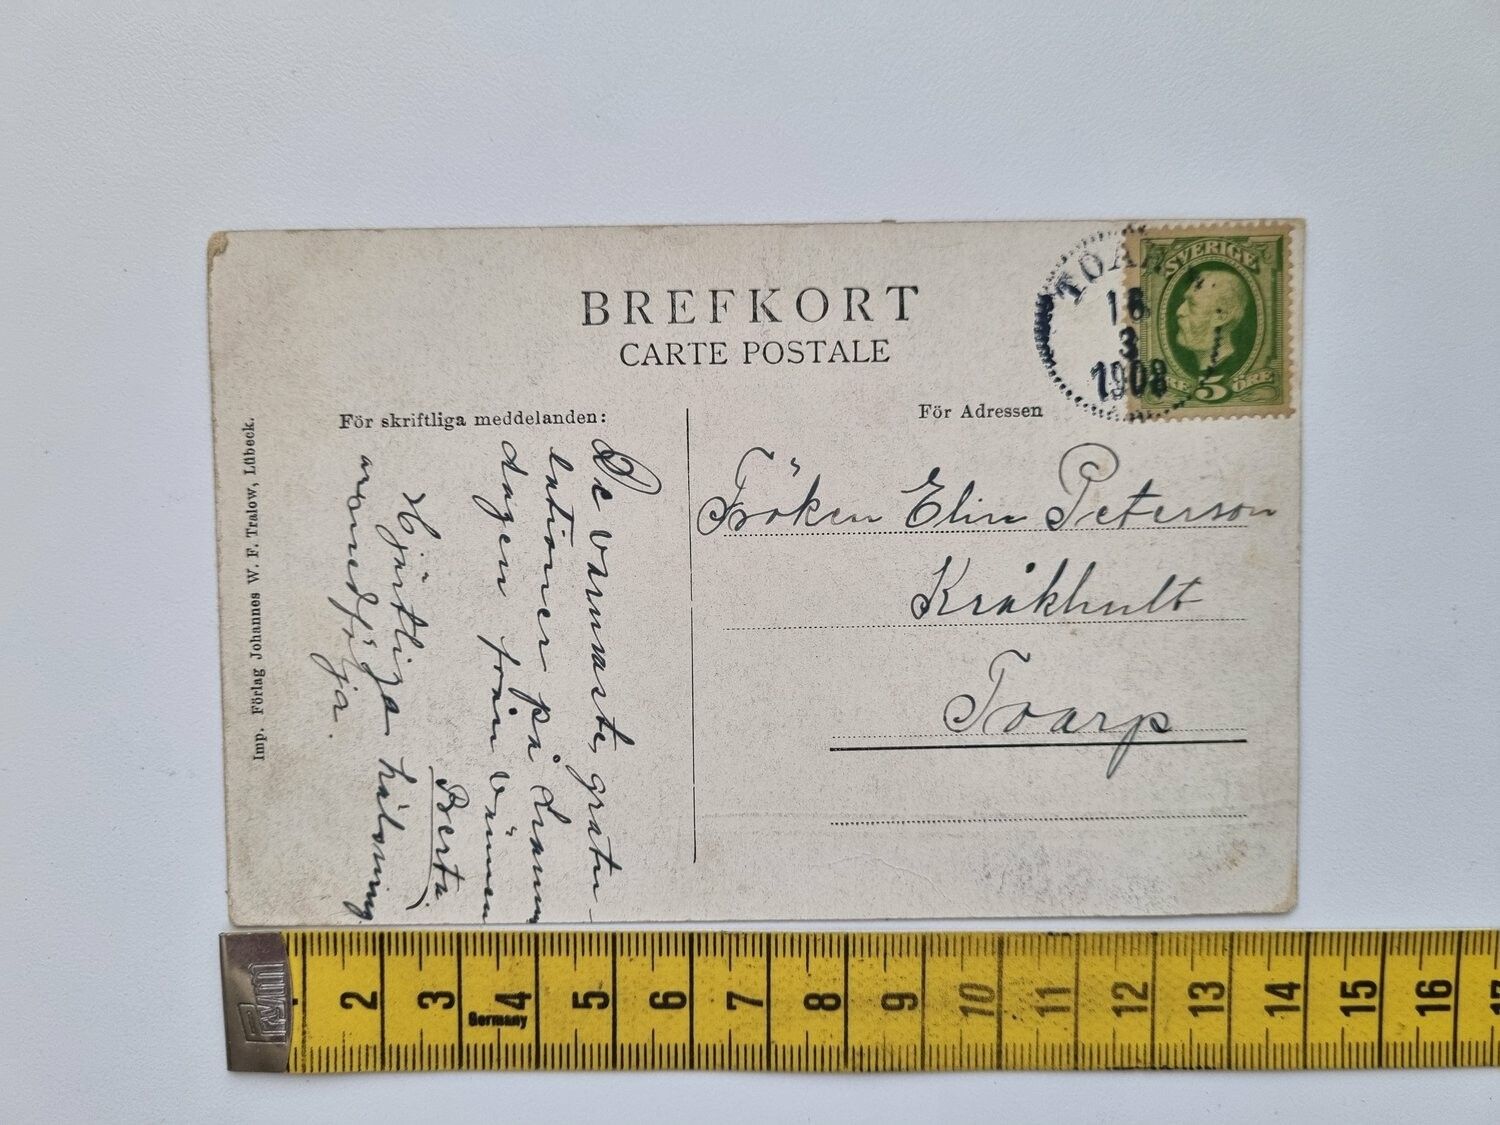 BREFKORT
CARTE POSTALE
För skriftliga meddelanden:
För Adressen
Imp. Förlag Johannes W. F. Tralow, Lübeck.
De varmaste gratu-
lationer på
dagen från vännen
Berta.
Hjärtliga hälsning
medfölja.
Fröken Elin Peterson
Kråkhult
Toarp
TOAR
16
3
1908
SVERIGE
5 ÖRE
2 3 4 5 6 7 8 9 10 11 12 13 14 15 16
Germany